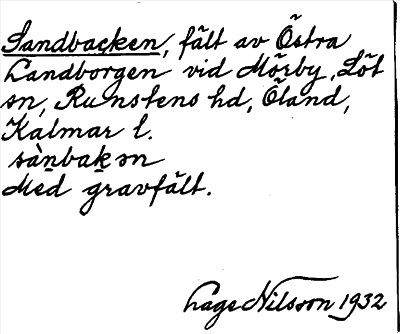 Sandbacken, fält av Östra
Landborgen vid Mörby, Löt
sn, Runstens hd, Öland,
Kalmar l.
sànbakən
Med gravfält.
Lage Nilsson 1932